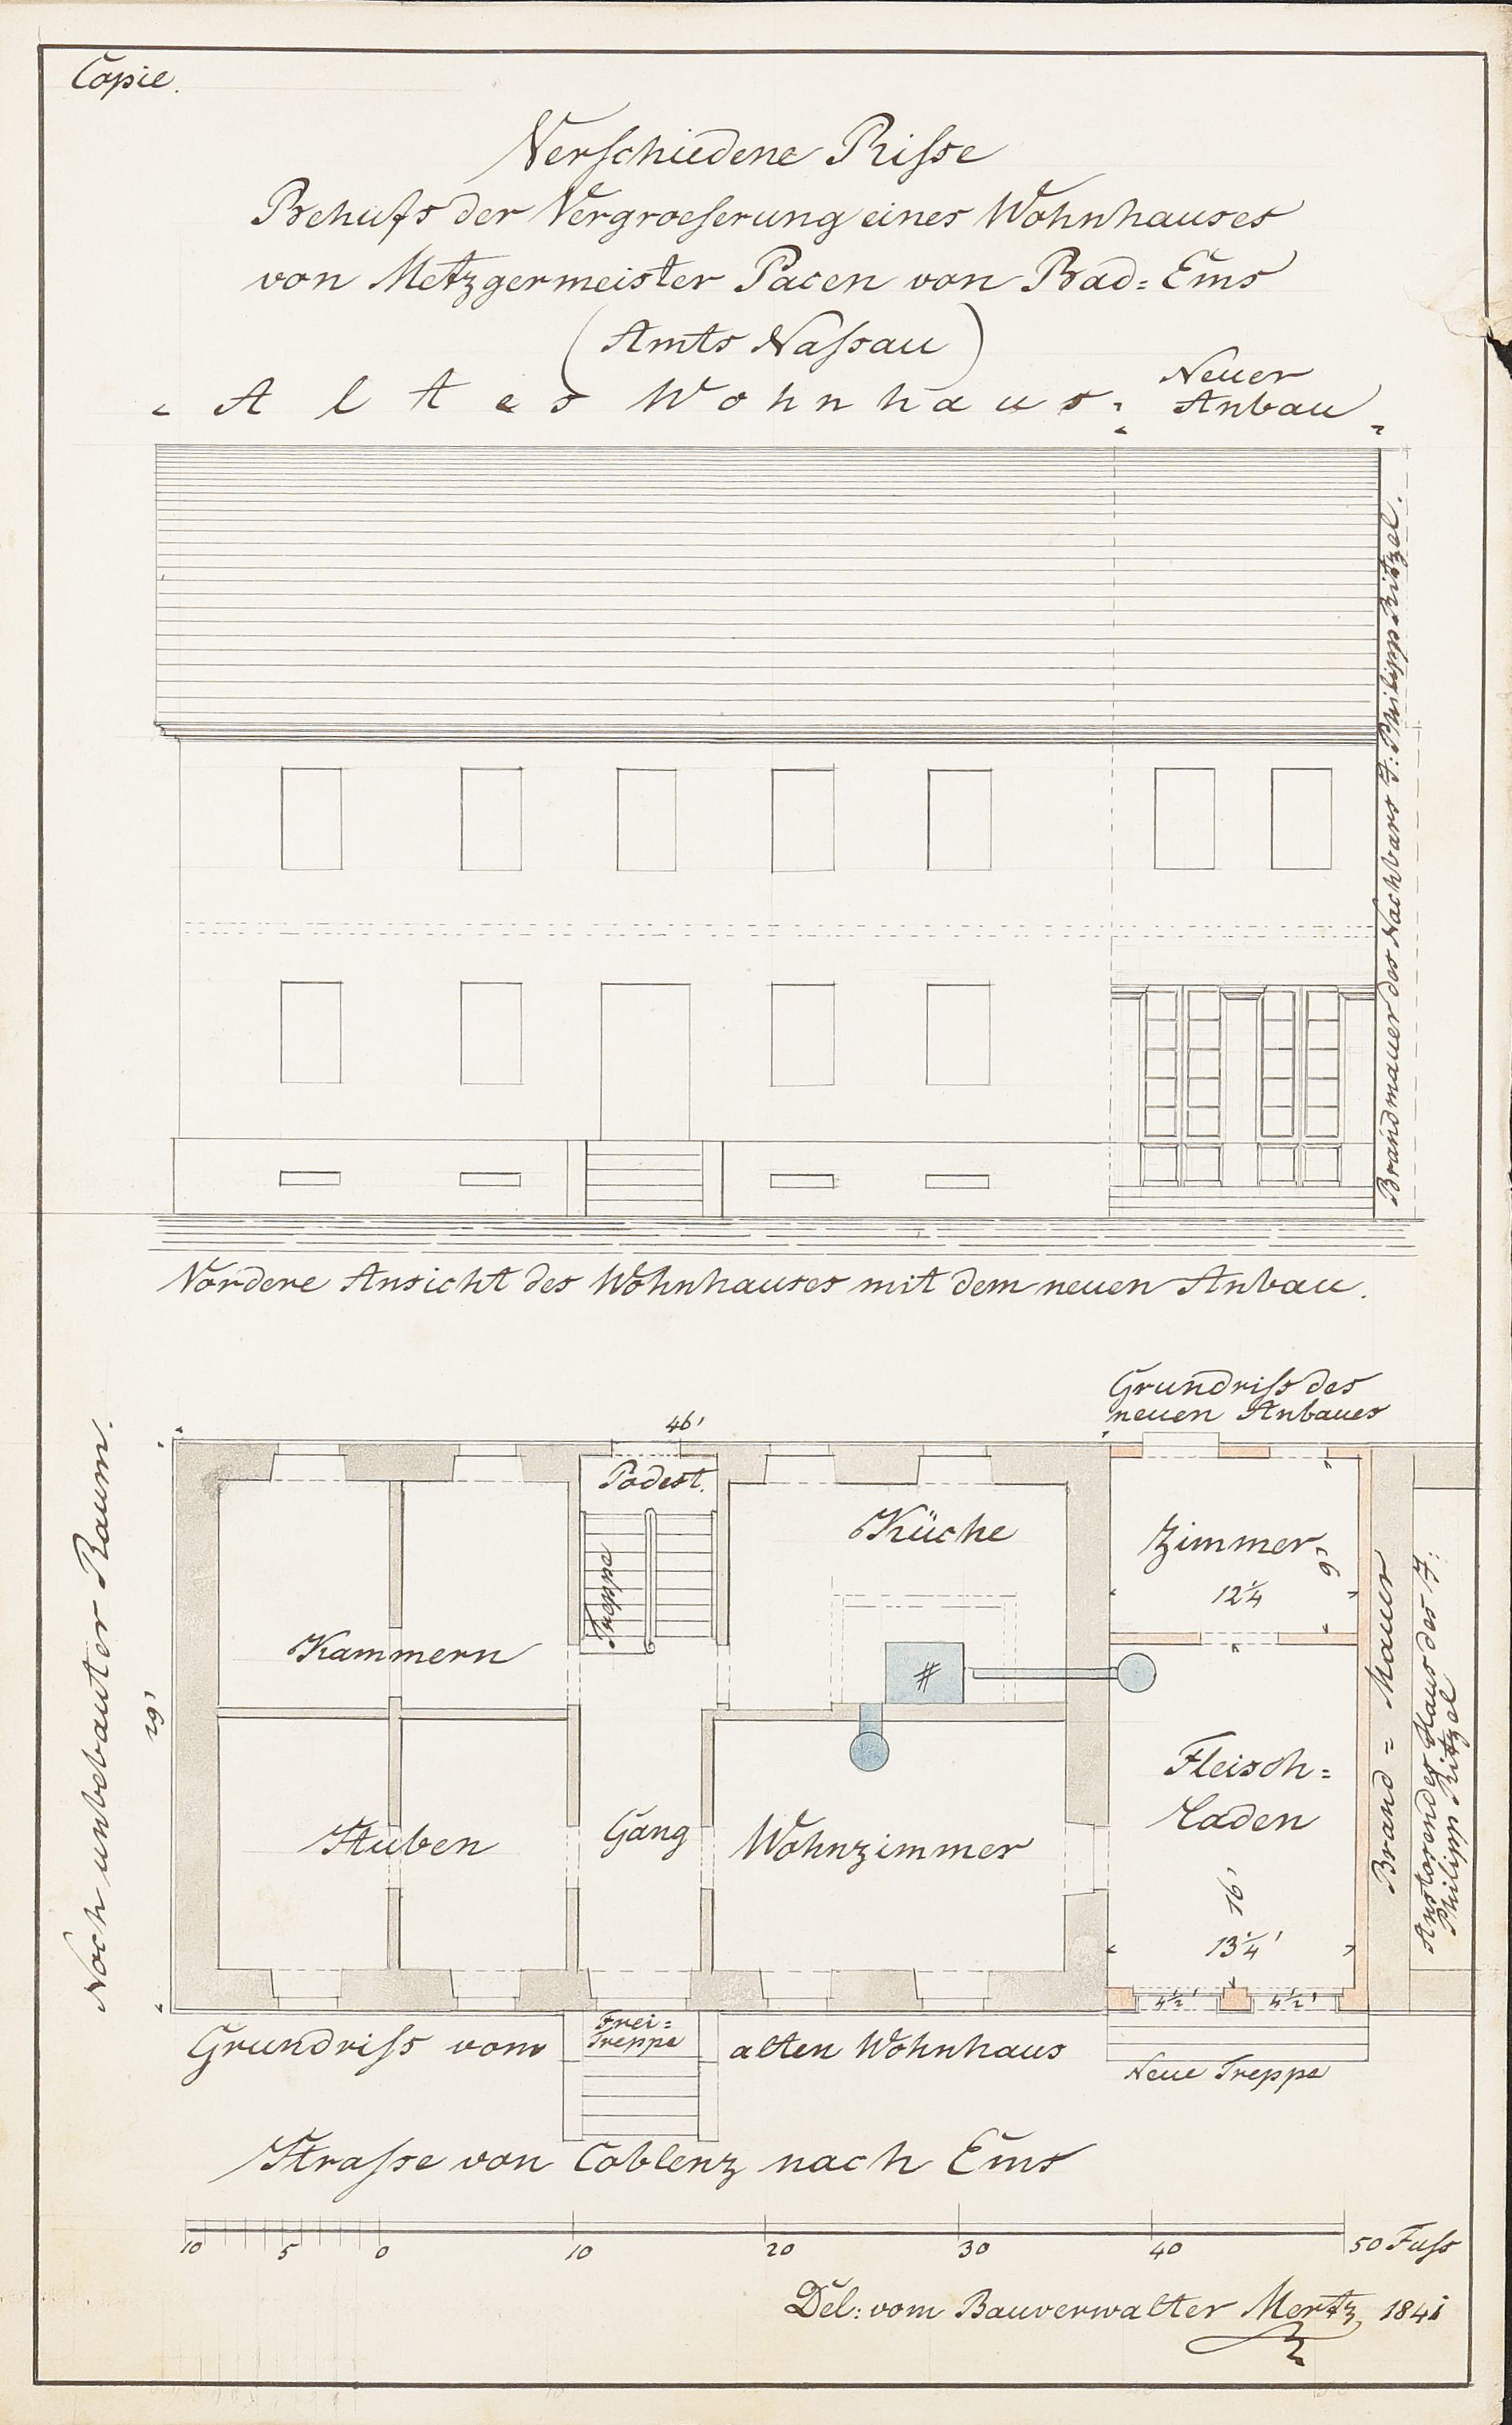 Copie.
Verschiedene Risse
Behufs der Vergroeserung eines Wohnhauses
von Metzgermeister Pacen von Bad-Ems
(Amts Nassau)
Altes Wohnhaus
Neuer
Anbau
Brandmauer des Nachbars F: Philipp Ritzel.
Vordere Ansicht des Wohnhauses mit dem neuen Anbau.
Grundriss des
neuen Anbaues
46'
Podest.
Küche
Zimmer
9'
12¼
Treppe
Kammern
Noch unbebauter Raum.
29'
#
Brand = Mauer
Anstosendes Haus des F:
Philipp Ritzel
Fleisch=
Laden
Stuben
Gang
Wohnzimmer
16'
13¼'
4½'
4½'
Frei=
Treppe
Grundriss vom alten Wohnhaus
Neue Treppe
Strasse von Coblenz nach Ems
10 5 0 10 20 30 40 50 Fuss
Del: vom Bauverwalter Mertz 1841